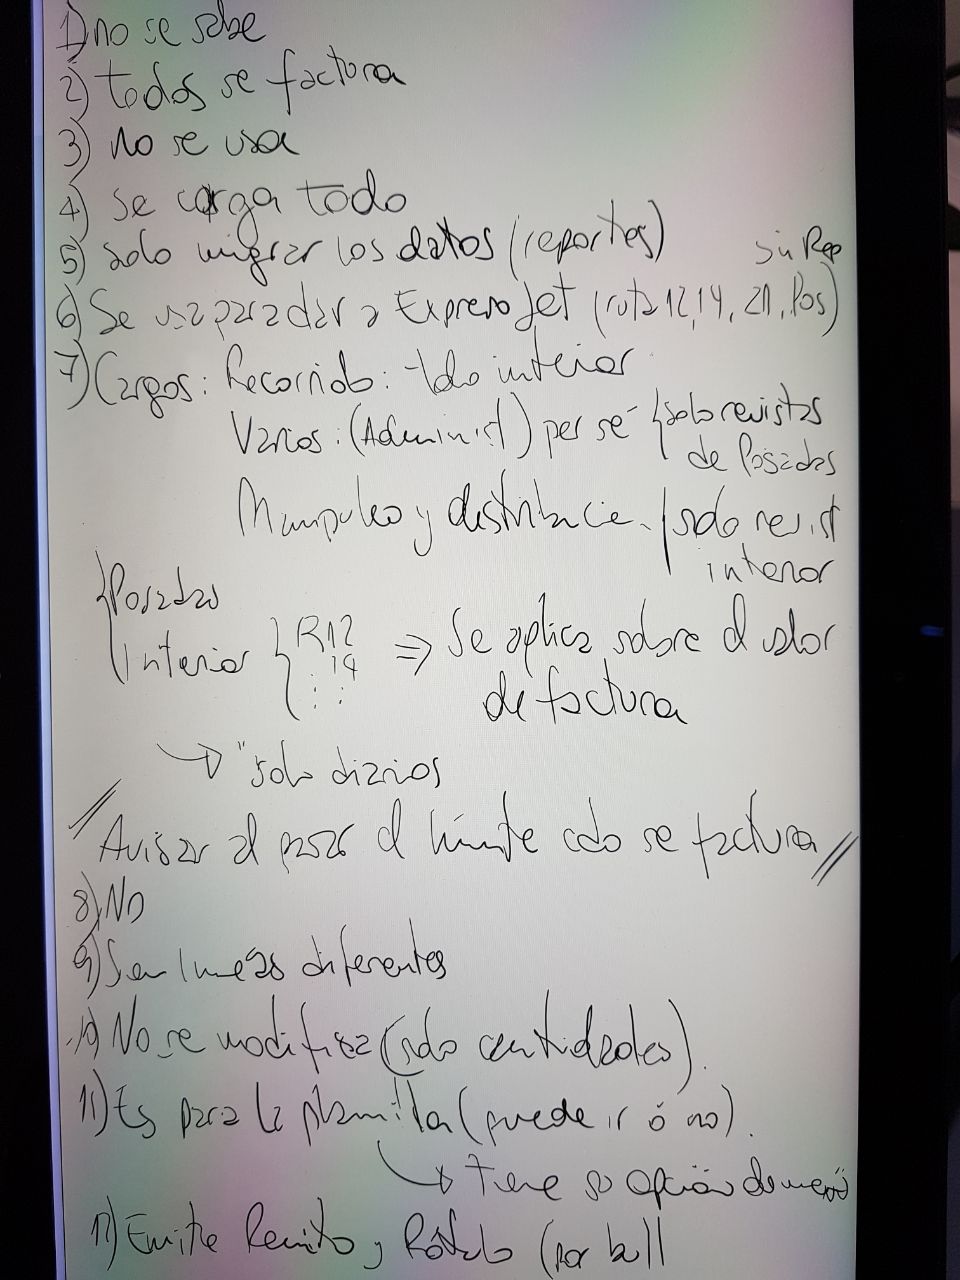 1) no se sabe
2) todos se factura
3) no se usa
4) se carga todo
5) solo migrar los datos (reportes)
sin Rep
6) Se usa para dar a Expreso Jet (ruta 12, 14, 21, Pos)
7) Cargos: Recorrido: tdo interior
Varios: (Administ) per sé { solo revistas
de Posadas
Manipuleo y distribucie. { solo revist
interior
{ Posadas
Interior { R12
14
: :
=> Se aplica sobre el valor
de factura
→ "solo diarios
// Avisar al pasar el límite cdo se factura //
8) No
9) Son líneas diferentes
10) No se modifica (solo cantidades).
11) Es para la planilla (puede ir ó no).
→ tiene su opción de menú
12) Emite Remito y Rótulo (por bull